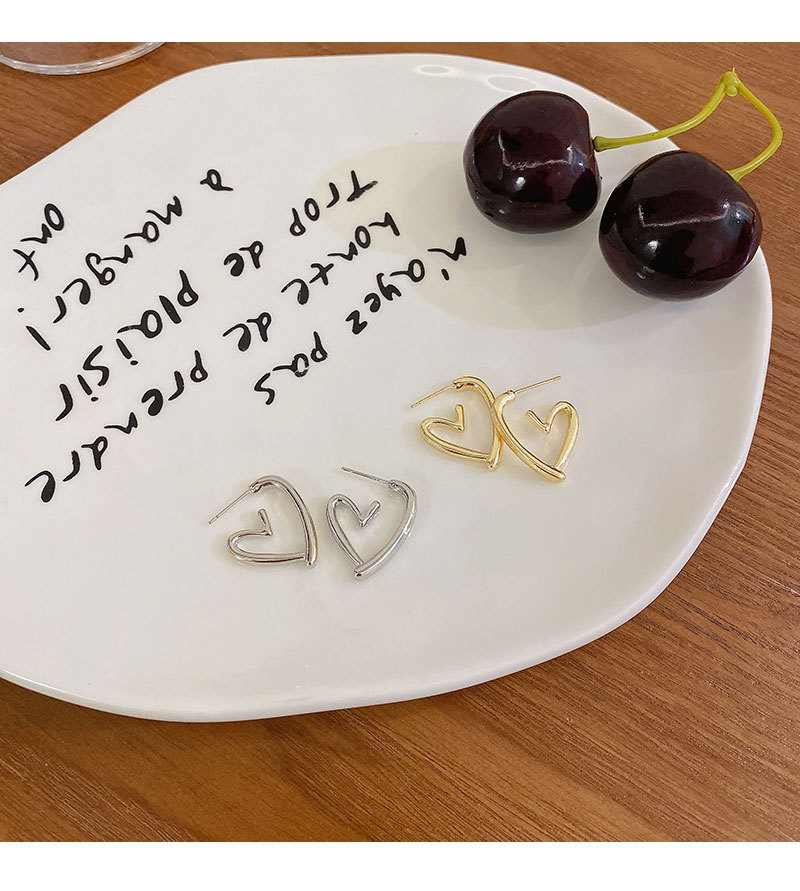 n'ayez pas
honte de prendre
Trop de plaisir
a manger!
ont